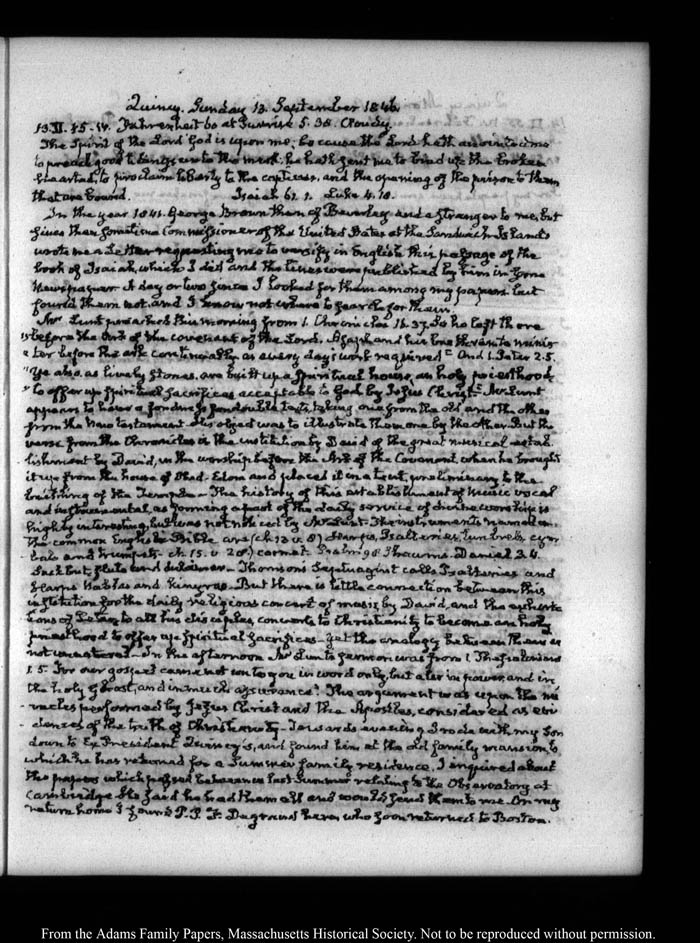 Quincy. Sunday 13. September 1846.
13. II. 45 - IV. Fahrenheit 60 at Sunrise 5.38. Cloudy
The Spirit of the Lord God is upon me; because the Lord hath anointed me
to preach good tidings unto the meek; he hath sent me to bind up the broken
hearted, to proclaim liberty to the captives, and the opening of the prison to them
that are bound. Isaiah 61. 1. Luke 4. 18.
In the year 1841. George Brown then of Beverley and a stranger to me, but
since then sometime Commissioner of the United States at the Sandwich Islands
wrote me a Letter requesting me to versify in English this passage of the
book of Isaiah, which I did and the lines were published by him in some
Newspaper. A day or two since I looked for them among my papers but
found them not, and I know not where to search for them.
Mr Lunt preached this morning from 1. Chronicles 16. 37. So he left there
before the Ark of the covenant of the Lord, Asaph and his brethren to minis
ter before the ark continually, as every day's work required And 1. Peter 2.5.
Ye also, as lively stones, are built up a Spiritual house, an holy priesthood
to offer up Spiritual Sacrifices acceptable to God by Jesus Christ. Mr Lunt
appears to have a fondness for double texts, taking one from the old and the other
from the New testament. His object was to illustrate them one by the other. But the
verse from the Chronicles is the institution by David of the great musical estab
lishment by David, in the worship before the Ark of the Covenant, when he brought
it up from the house of Obed-Edom and placed it in a tent, preliminary to the
building of the Temple. The history of this establishment of music vocal
and instrumental, as forming a part of the daily service of divine worship is
highly interesting, but was not noticed by Mr Lunt. The instruments named in
the common English Bible are (ch. 13 v. 8) Harps, Psalteries, timbrels cym
bals and trumpets. ch. 15. v 28.) cornet. Psalm 98 Shawms. Daniel 3. 4.
Sackbut, flute and dulcimer. Thomson's Septuagint calls Psalteries and
Harps Nablas and Kinyras. But there is little connection between this
institution for the daily religious concert of music by David, and the exhorta
tions of Peter to all his disciples, converts to Christianity to become an holy
priesthood to offer up spiritual sacrifices - yet the analogy between them is
not In the afternoon Mr Lunt's sermon was from 1. Thessalonians
1. 5. For our gospel came not unto you in word only, but also in power, and in
the holy Ghost, and in much assurance. The argument was upon the mi
racles performed by Jesus Christ and the Apostles, considered as evi
dences of the truth of Christianity. Towards evening I rode with my Son
down to Ex President Quincy's, and found him at the old family mansion, to
which he has returned for a Summer family residence. I enquired about
the papers which passed between us last Summer relating to the Observatory at
Cambridge. He said he had them all and would send them to me. On my
return home I found P. P. F. Degrand here, who soon returned to Boston.
From the Adams Family Papers, Massachusetts Historical Society. Not to be reproduced without permission.